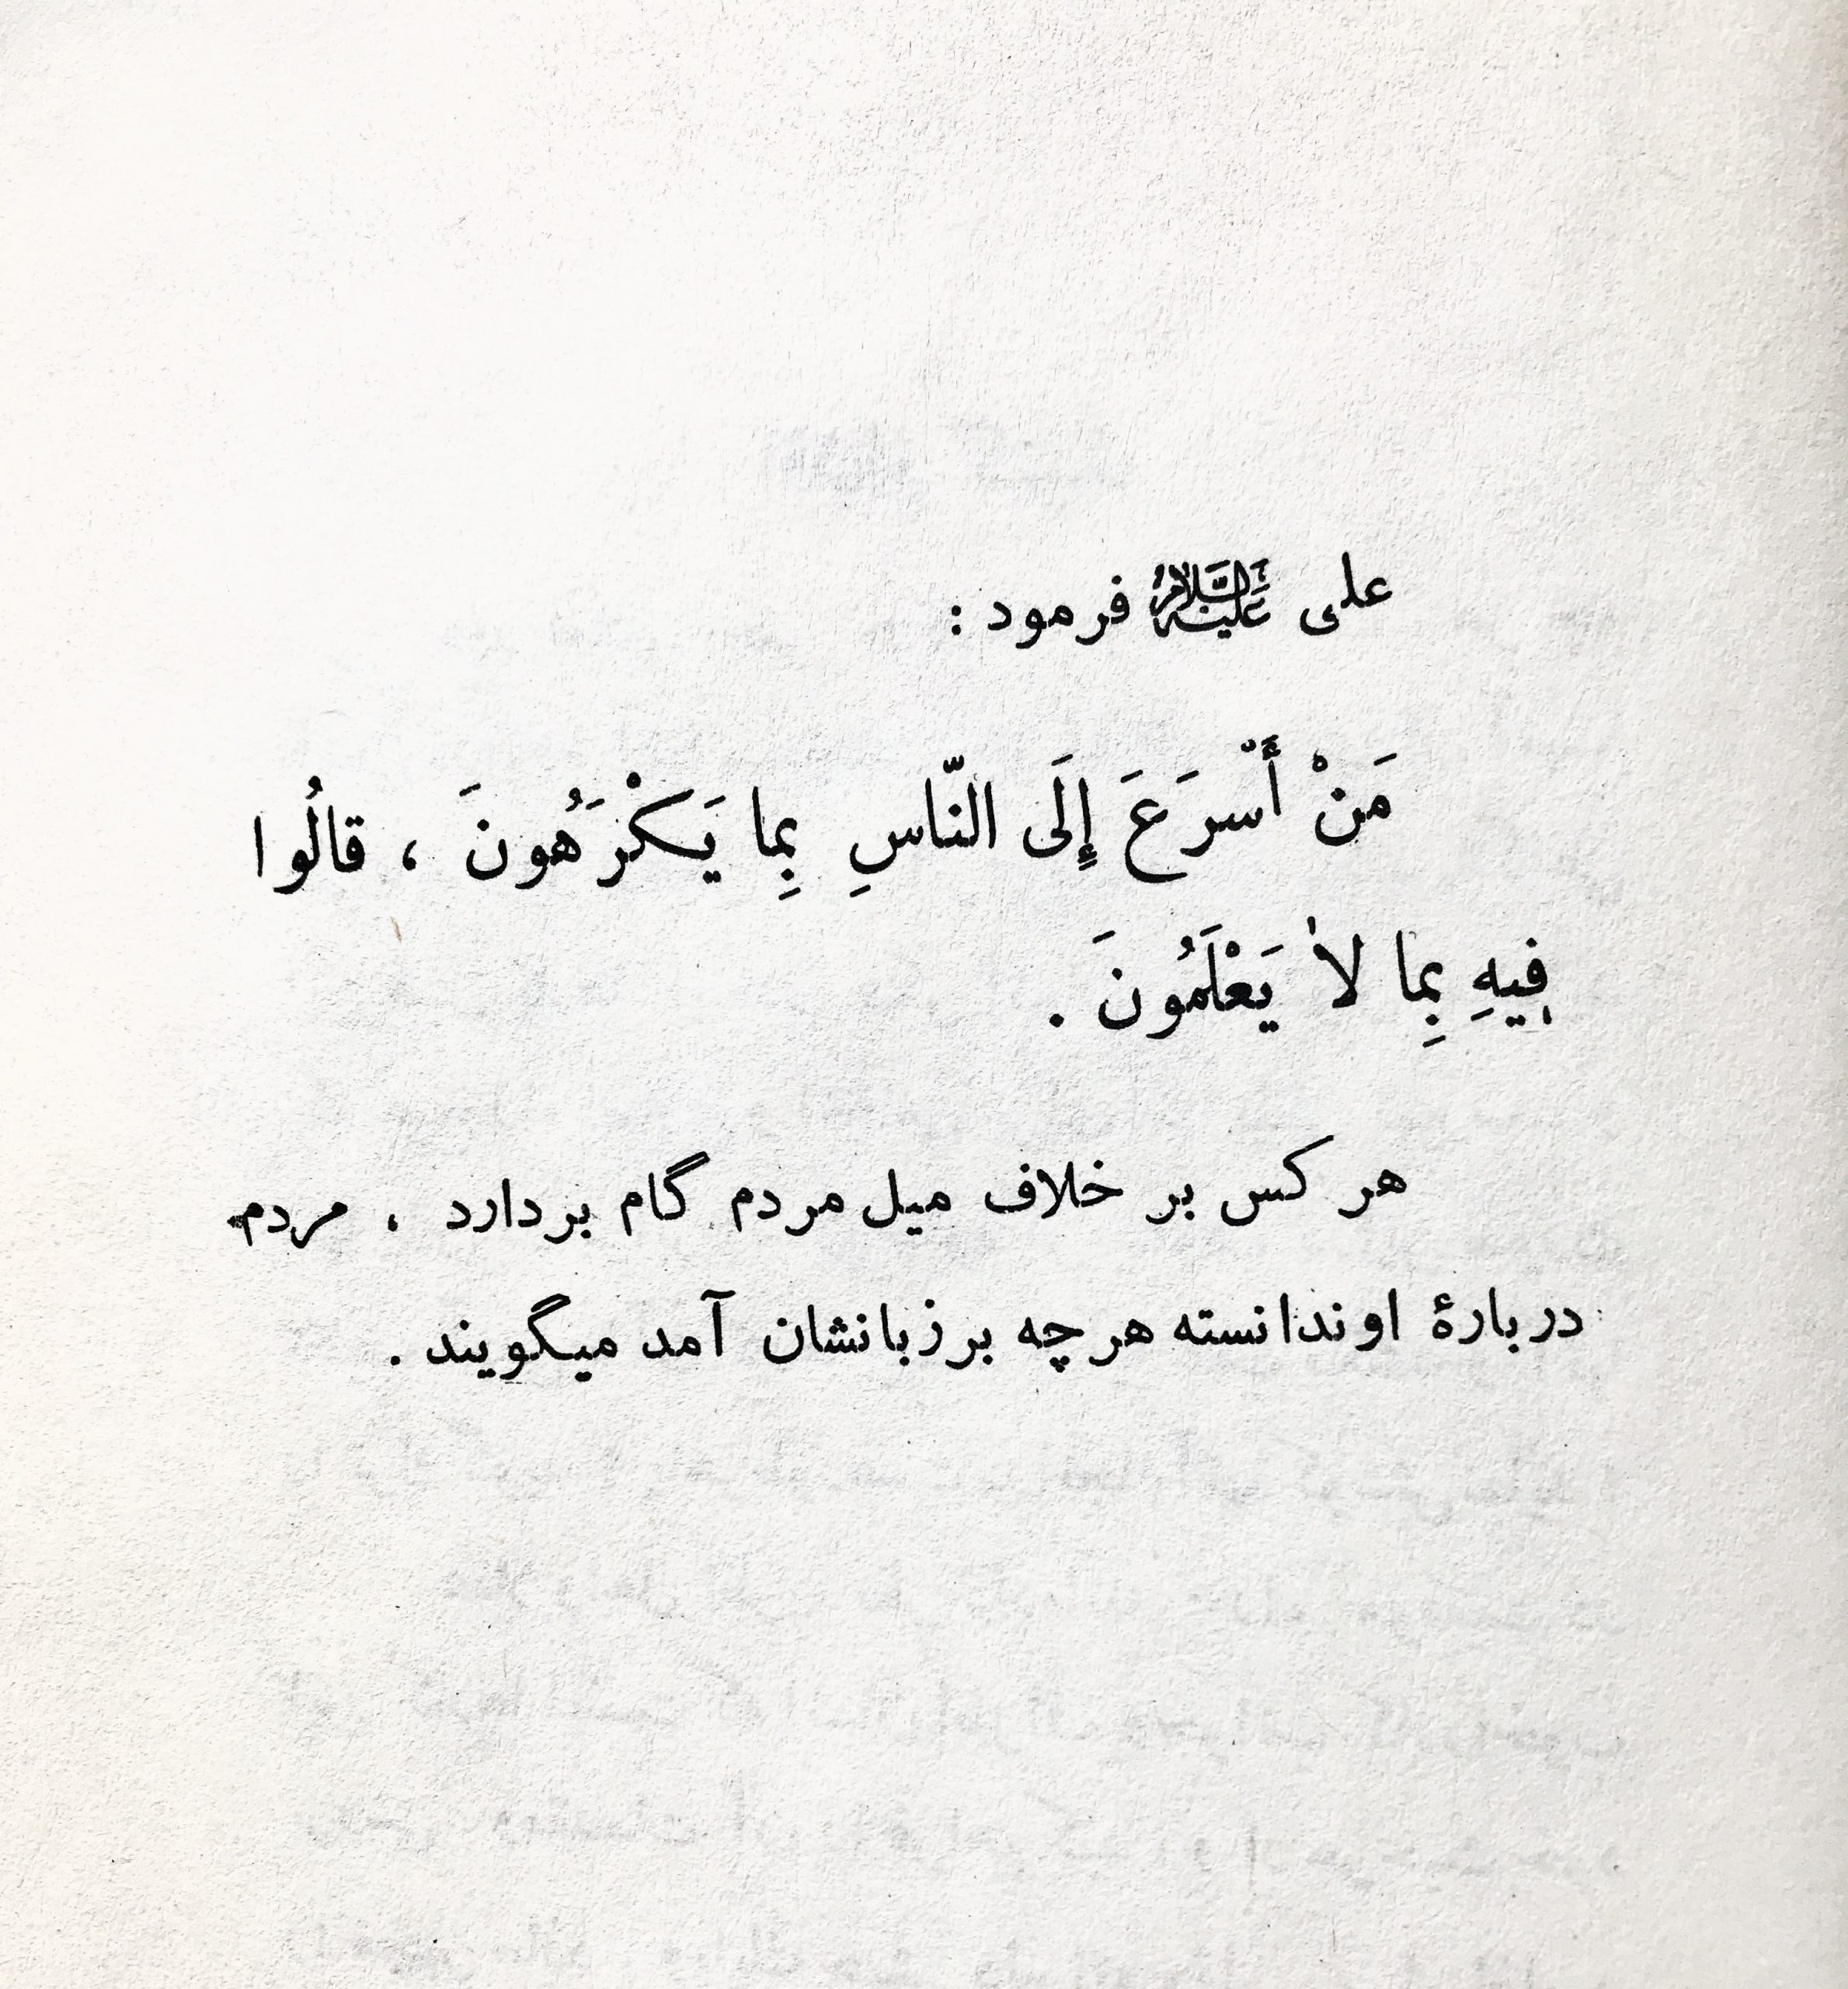 علی علیه‌السلام فرمود :
مَنْ أَسْرَعَ إِلَی النّاسِ بِما یَکْرَهُونَ ، قالُوا
فِیهِ بِما لاٰ یَعْلَمُونَ .
هر کس بر خلاف میل مردم گام بردارد ، مردم
دربارهٔ او ندانسته هر چه بر زبانشان آمد میگویند .